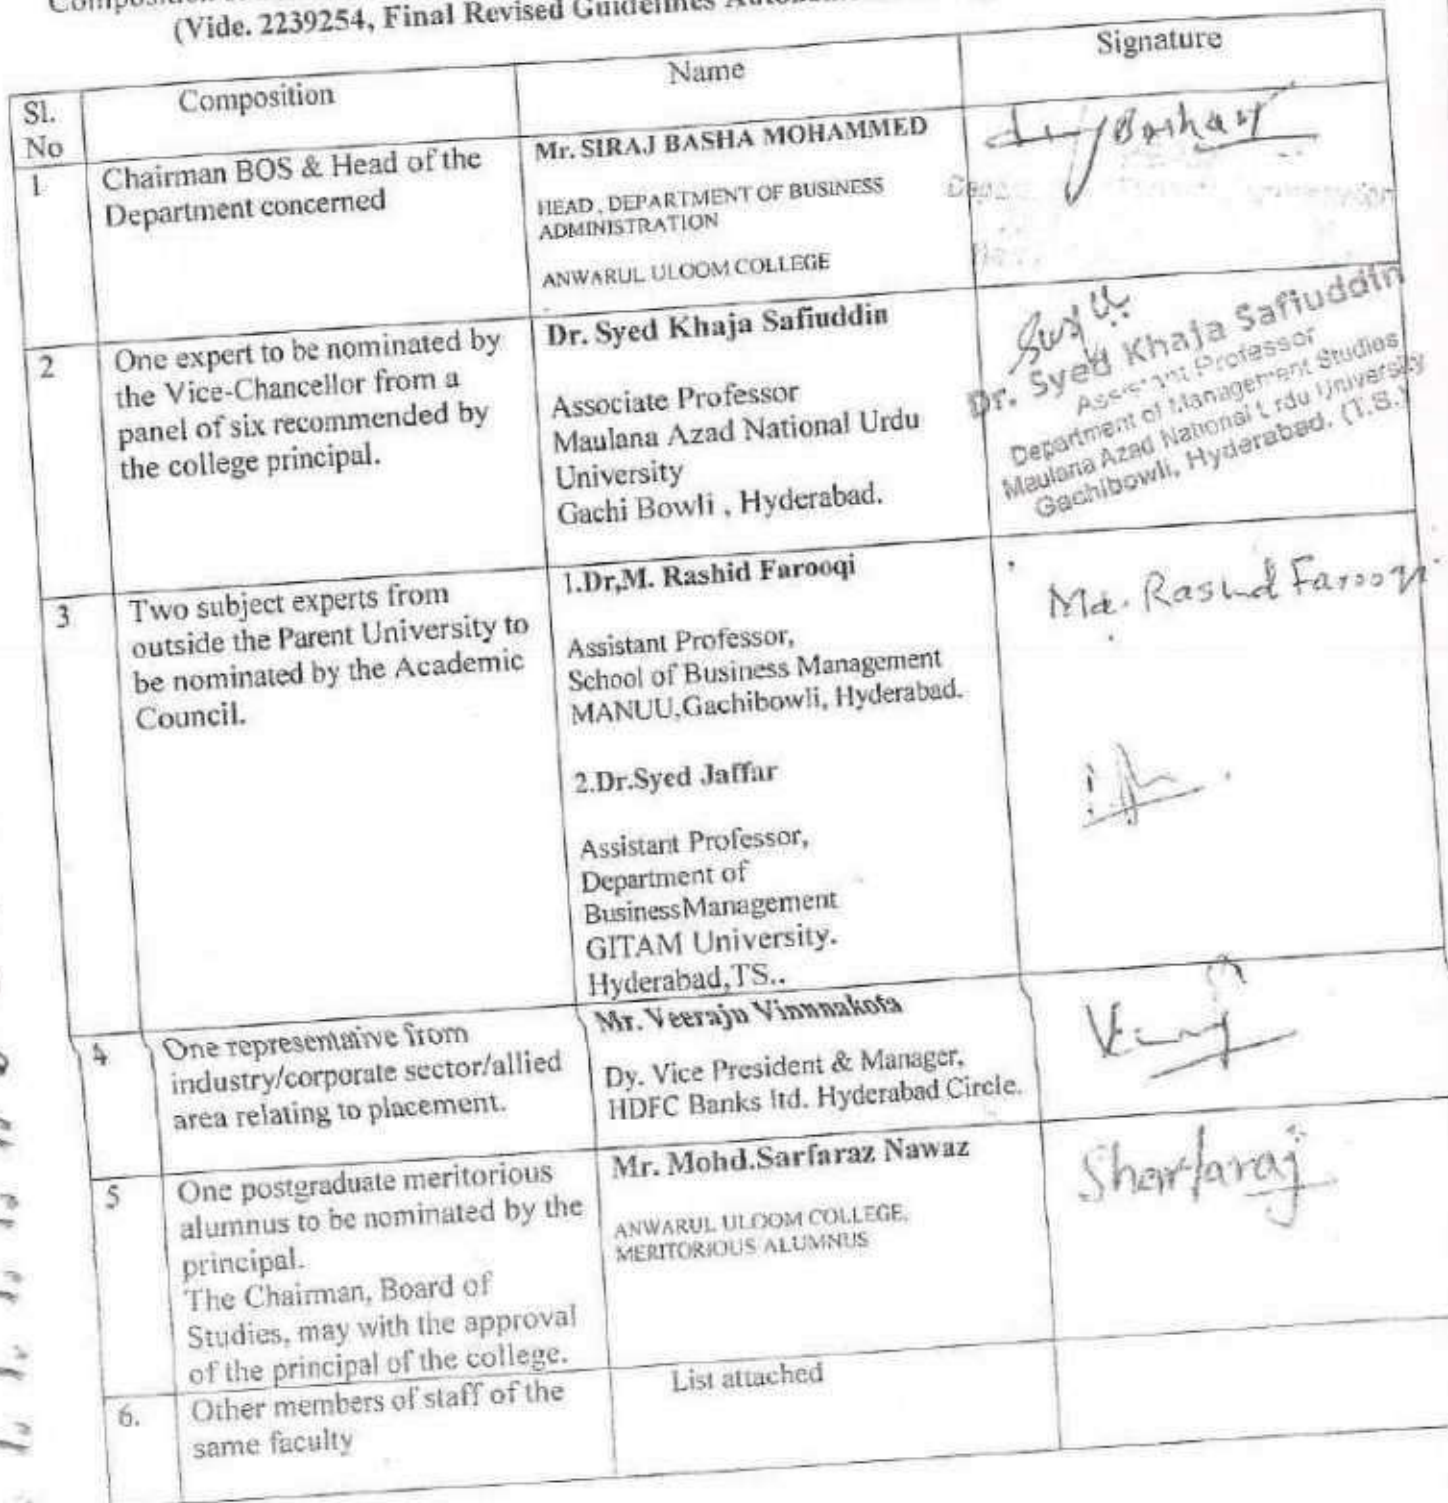 (Vide. 2239254, Final Revised Guidelines
Sl. No
Composition
Name
Signature
1
Chairman BOS & Head of the
Department concerned
Mr. SIRAJ BASHA MOHAMMED
HEAD , DEPARTMENT OF BUSINESS
ADMINISTRATION
ANWARUL ULOOM COLLEGE
2
One expert to be nominated by
the Vice-Chancellor from a
panel of six recommended by
the college principal.
Dr. Syed Khaja Safiuddin
Associate Professor
Maulana Azad National Urdu
University
Gachi Bowli , Hyderabad.
Dr. Syed Khaja Safiuddin
Assistant Professor
Department of Management Studies
Maulana Azad National Urdu University
Gachibowli, Hyderabad. (T.S.)
3
Two subject experts from
outside the Parent University to
be nominated by the Academic
Council.
1.Dr,M. Rashid Farooqi
Assistant Professor,
School of Business Management
MANUU,Gachibowli, Hyderabad.
Md. Rashid Farooqi
2.Dr.Syed Jaffar
Assistant Professor,
Department of
BusinessManagement
GITAM University.
Hyderabad,TS..
4
One representative from
industry/corporate sector/allied
area relating to placement.
Mr. Veeraju Vinnnakota
Dy. Vice President & Manager,
HDFC Banks ltd. Hyderabad Circle.
5
One postgraduate meritorious
alumnus to be nominated by the
principal.
The Chairman, Board of
Studies, may with the approval
of the principal of the college.
Mr. Mohd.Sarfaraz Nawaz
ANWARUL ULOOM COLLEGE,
MERITORIOUS ALUMNUS
Sharfaraj
6.
Other members of staff of the
same faculty
List attached